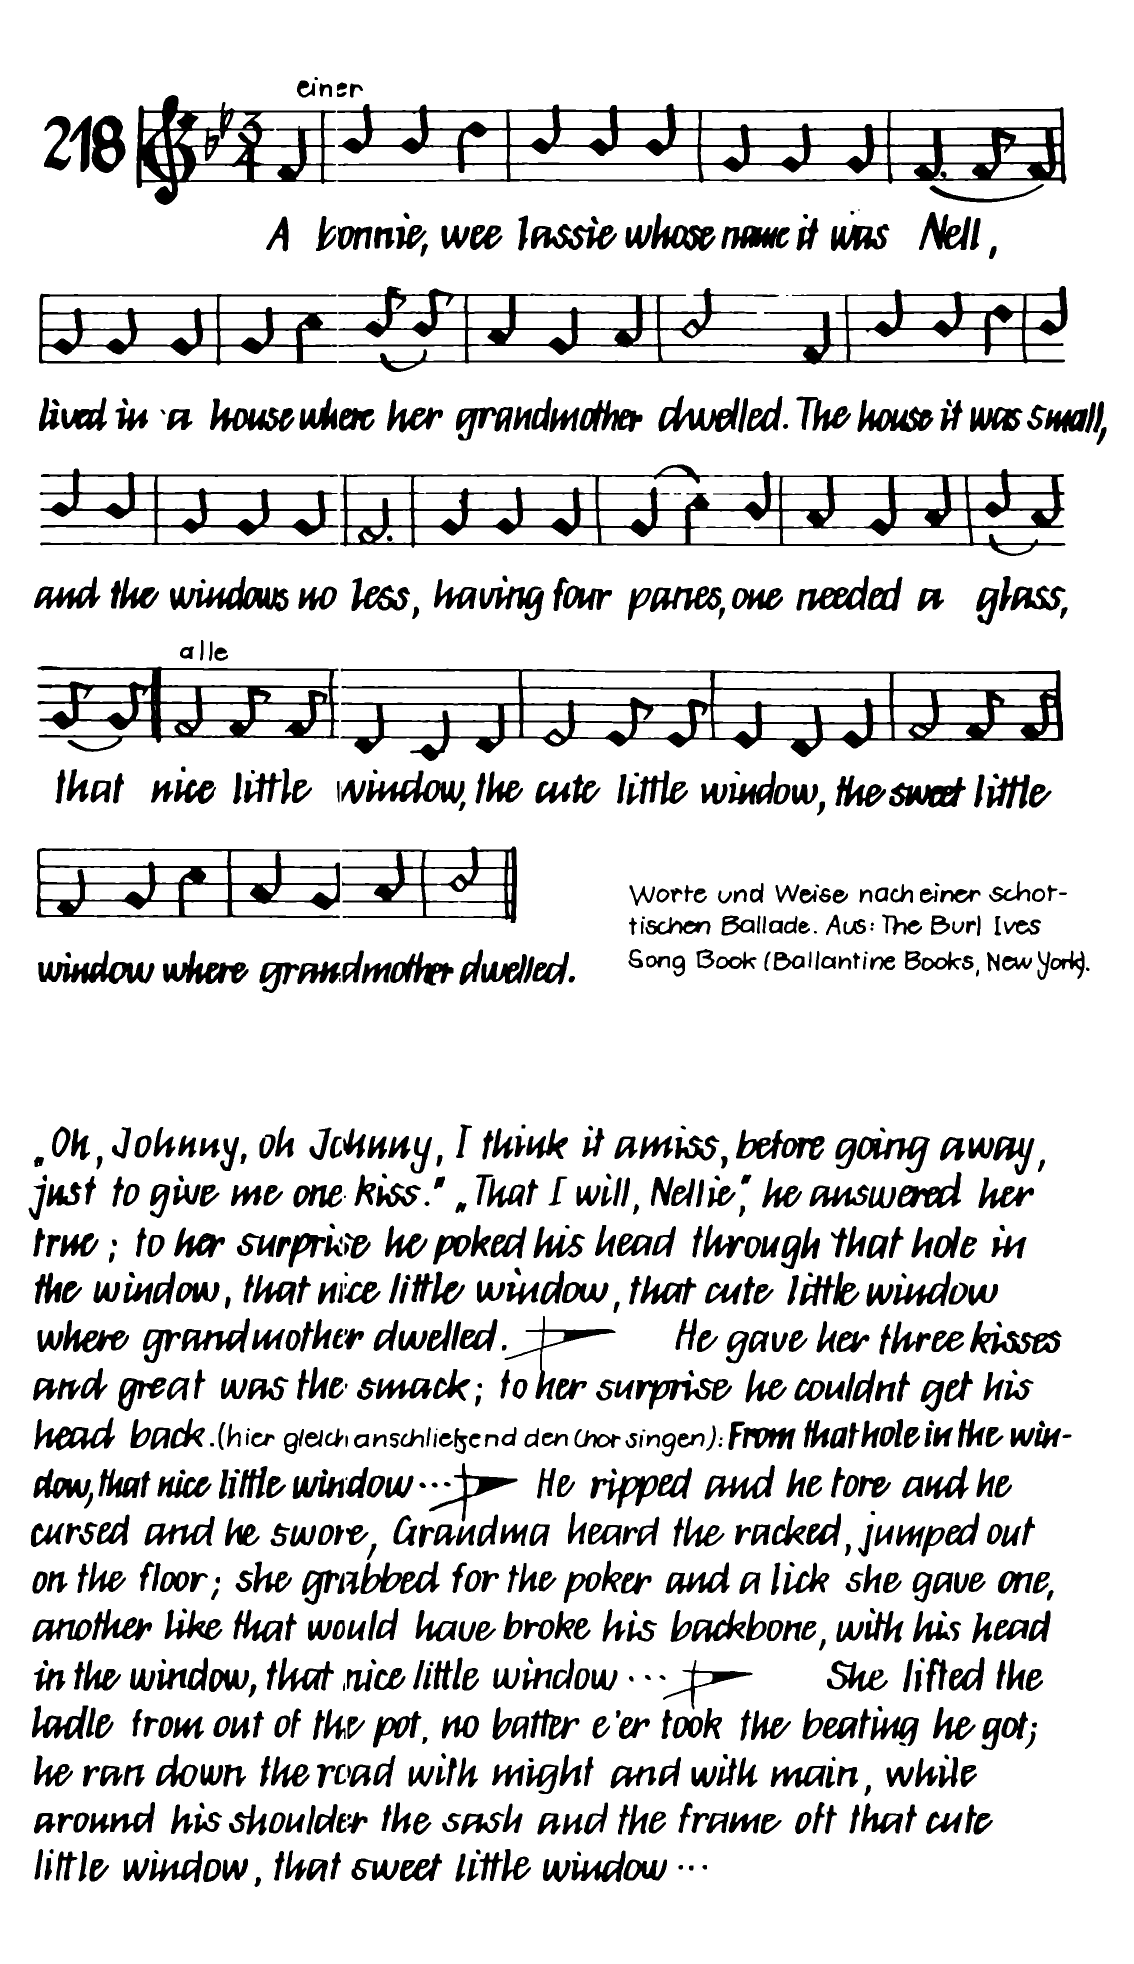 einer
218
A bonnie, wee lassie whose name it was Nell,
lived in a house where her grandmother dwelled. The house it was small,
and the windows no less, having four panes, one needed a glass,
alle
that nice little window, the cute little window, the sweet little
window where grandmother dwelled.
Worte und Weise nach einer schot-
tischen Ballade. Aus: The Burl Ives
Song Book (Ballantine Books, New York).
„Oh, Johnny, oh Johnny, I think it amiss, before going away,
just to give me one kiss." „That I will, Nellie", he answered her
true; to her surprise he poked his head through that hole in
the window, that nice little window, that cute little window
where grandmother dwelled. He gave her three kisses
and great was the smack; to her surprise he couldnt get his
head back. (hier gleich anschließend den Chor singen): From that hole in the win-
dow, that nice little window... He ripped and he tore and he
cursed and he swore, Grandma heard the racked, jumped out
on the floor; she grabbed for the poker and a lick she gave one,
another like that would have broke his backbone, with his head
in the window, that nice little window... She lifted the
ladle from out of the pot, no batter e'er took the beating he got;
he ran down the road with might and with main, while
around his shoulder the sash and the frame oft that cute
little window, that sweet little window...